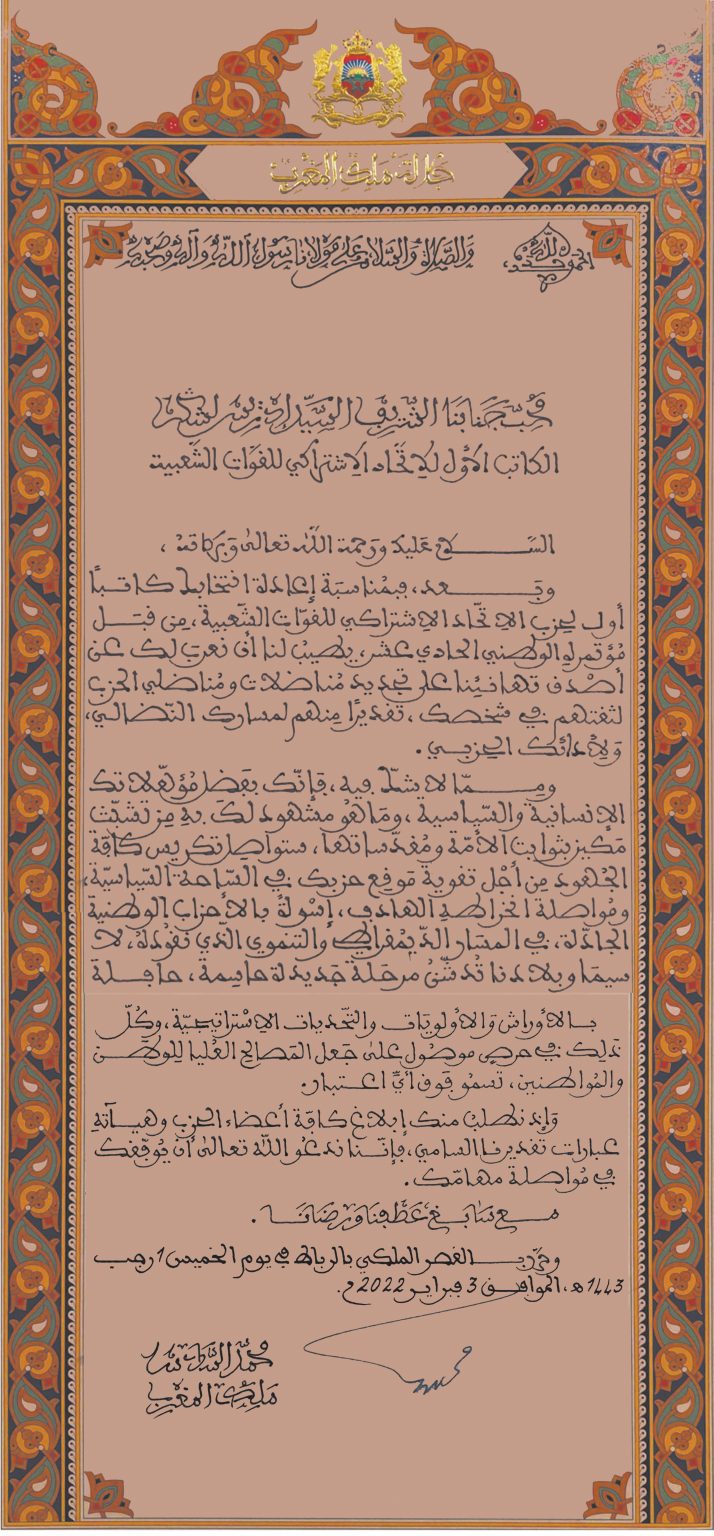 جلالة ملك المغرب
الحمد لله وحده
والصلاة والسلام على مولانا رسول الله وآله وصحبه
محب جنابنا الشريف السيد إدريس لشكر
الكاتب الأول للاتحاد الاشتراكي للقوات الشعبية
السـلام عليك ورحمة الله تعالى وبركاته،
وبـعد، فبمناسبة إعادة انتخابك كاتبًا
أول لحزب الاتحاد الاشتراكي للقوات الشعبية، من قبل
مؤتمره الوطني الحادي عشر، يطيب لنا أن نعرب لك عن
أصدق تهانينا على تجديد مناضلات ومناضلي الحزب
لثقتهم في شخصك، تقديرًا منهم لمسارك النضالي،
ولأدائك الحزبي.
ومـما لا يشك فيه، فإنك بفضل مؤهلاتك
الإنسانية والسياسية، وما هو مشهود لك به من تشبث
مكين بثوابت الأمة ومقدساتها، ستواصل تكريس كافة
الجهود من أجل تقوية موقع حزبك في الساحة السياسية،
ومواصلة انخراطه الهادف، إسوة بالأحزاب الوطنية
الجادة، في المسار الديمقراطي والتنموي الذي نقوده، لا
سيما وبلادنا تدشن مرحلة جديدة حاسمة، حافلة
بالأوراش والأولويات والتحديات الاستراتيجية، وكل
ذلك في حرص موصول على جعل المصالح العليا للوطن
والمواطنين، تسمو فوق أي اعتبار.
وإذ نطلب منك إبلاغ كافة أعضاء الحزب وهيآته
عبارات تقديرنا السامي، فإننا ندعو الله تعالى أن يوفقك
في مواصلة مهامك.
مـع سابغ عطفنا ورضانا.
وحرر بـالقصر الملكي بالرباط في يوم الخميس 1 رجب
1443 هـ، الموافق 3 فبراير 2022 م.
محمد السادس
ملك المغرب